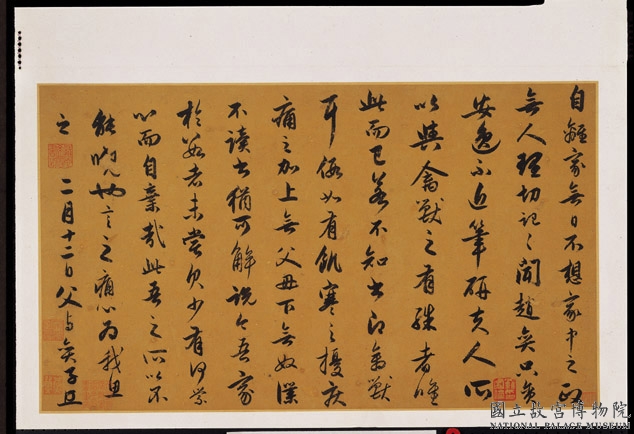 自離家無日不想家中之
無人理切記々聞趙矣只矣
安逸不近筆研夫人所
以與禽獸之有殊者唯
此而已若不知書即禽獸
耳假如有飢寒之擾疾
痛之加上無父毋下無奴僕
不讀書猶可解說今吾家
於若者未嘗欠少有何
心而自棄哉此吾之所以不
能 也言之痛心為我
之
二月十二日父与 子
國立故宮博物院
NATIONAL PALACE MUSEUM